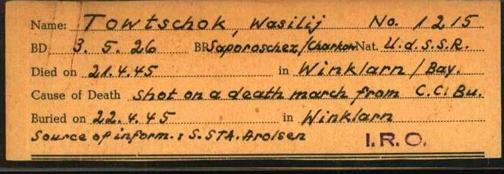 Name: Towtschok, Wasilij No. 1215
BD 3. 5. 26 BP Saporoschez/Charkow Nat. U.d.S.S.R.
Died on 21.4.45 in Winklarn/Bay.
Cause of Death shot on a death march from C.C. Bu.
Buried on 22.4.45 in Winklarn
Source of inform.: S.STA. Arolsen
I.R.O.